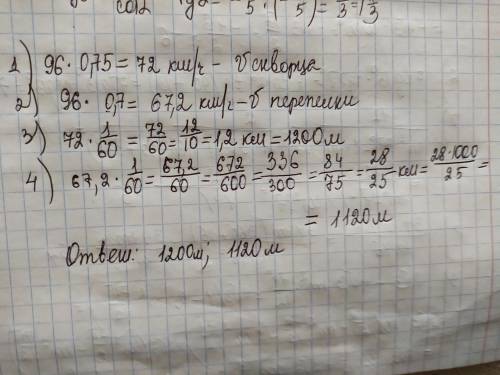 cos2 tg2 = - 5 · (- 5) = 3 = 1 1/3
1) 96 · 0,75 = 72 км/ч - V скворца
2) 96 · 0,7 = 67,2 км/ч - V перепелки
3) 72 · 1/60 = 72/60 = 12/10 = 1,2 км = 1200 м
4) 67,2 · 1/60 = 67,2/60 = 672/600 = 336/300 = 84/75 = 28/25 км = 28·1000/25 =
= 1120 м
Ответ: 1200 м; 1120 м